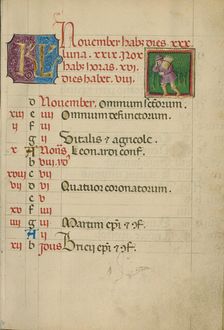 KL November habz dies xxx
luna. xxix. Nox
habz horas. xvi.
dies habet. viii.
d November. Omnium sctorum.
xiii e iiii Omnium defunctorum.
ii f iii
g ii Vitalis & agricole.
x A Nonas Leonardi conf.
b viii
xviii c vii
vii d vi Quatuor coronatorum.
e v
xv f iiii
iiii g iii Martini epi & cf.
A ii
xii b Idus Bricii epi & cf.